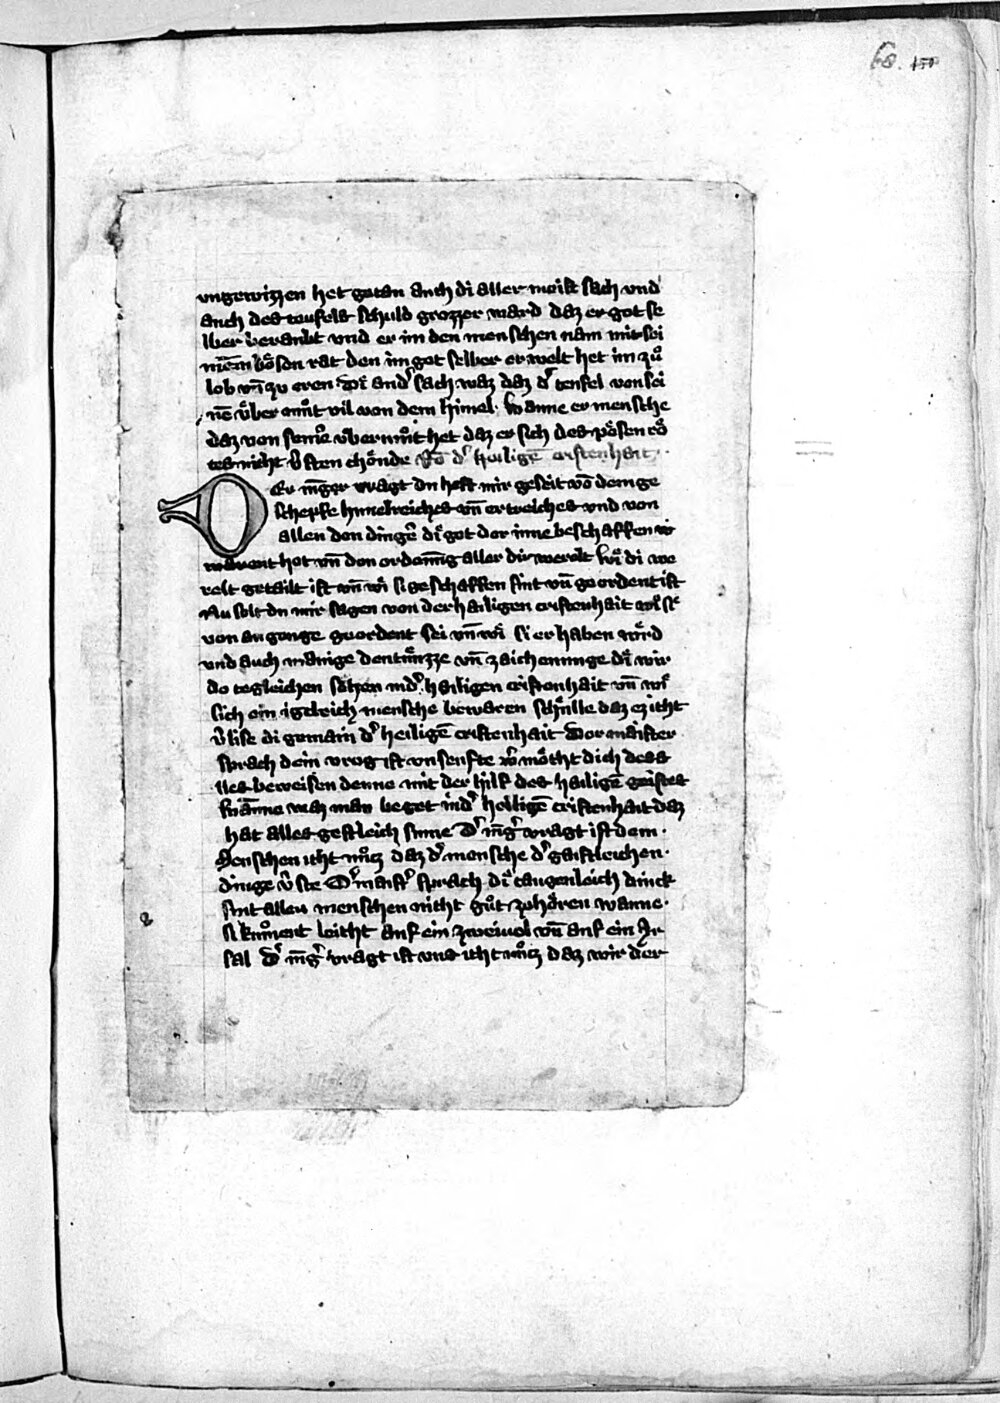 68. 150
vngewizzen het getan auch di aller meist sach vnd
auch des teufels schuld grozzer ward daz er got se
lber beraubt vnd er im den menschen nam mit sei
nē bo͛sen rat den im got selber erwelt het im zů
lob vn̄ zv eren Di͛ and͛ sach waz daz d͛ teufel von sei
nē v͛ber můt vil von dem himel. Wanne er mensche
daz von seinē v͛bermůt het daz er sich des po͛sen
tes nicht v͛sten cho͛nde Vō d͛ heiligē cristenhait.
Er iūger vragt du hast mir geseit vō dem ge
schepfe himelreiches vn̄ ertreiches vnd von
allen den dingē di͛ got dar inne beschaffen
het vn̄ den ordenūg aller dir werelt wi͛ di we
relt getailt ist vn̄ wi͛ si geschaffen sint vn̄ geordent ist
Nu solt du mir sagen von der hailigen cristenhait wi͛ si͛
von angenge geordent sei vn̄ wi͛ si erhaben wi͛rd
vnd auch manige bentu͛zze vn̄ zaichenunge di͛ wir
do tegleichen sehen in d͛ heiligen cristenhait vn̄ wi͛
sich ein igeleich mensche bewaren schu͛lle daz ez icht
v͛lise di gemain d͛ heiligē cristenhait Der maister
sprach dein vrog ist vnsenfte wi͛ mo͛cht dich des a
lles beweisen denne mit der hilf des heiligē geistes
Wanne waz man beget in d͛ heiligē cristenhait daz
hat alles gestleich sinne D͛ iūg͛ vragt ist dem.
Menschen icht nůcz daz d͛ mensche d͛ gaistleichen.
dinge v͛ste D͛ maist͛ sprach di͛ taugenleich dinck
sint allen menschen nicht gůt zuho͛ren wanne.
si kůment leicht auf ein zweiuel vn̄ auf ein Ir
sal D͛ iūg͛ vragt ist vns icht nůcz daz wir der